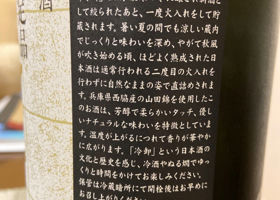 して搾られたあと、一度火入れをして貯
蔵されます。暑い夏の間でも涼しい蔵内
でじっくりと味わいを深め、やがて秋風
が吹き始める頃、ほどよく熟成された日
本酒は通常行われる二度目の火入れを
行わずに自然なままの姿で直詰めされま
す。兵庫県西脇産の山田錦を使用したこ
のお酒は、芳醇で柔らかいタッチ、優し
いナチュラルな味わいを特徴としていま
す。温度が上がるにつれて香りが華やか
に広がります。「冷卸」という日本酒の
文化と歴史を感じ、冷酒やぬる燗でゆっ
くりと時間をかけてお楽しみください。
保管は冷蔵暗所にて開栓後はお早めに
お召し上がりください
酒